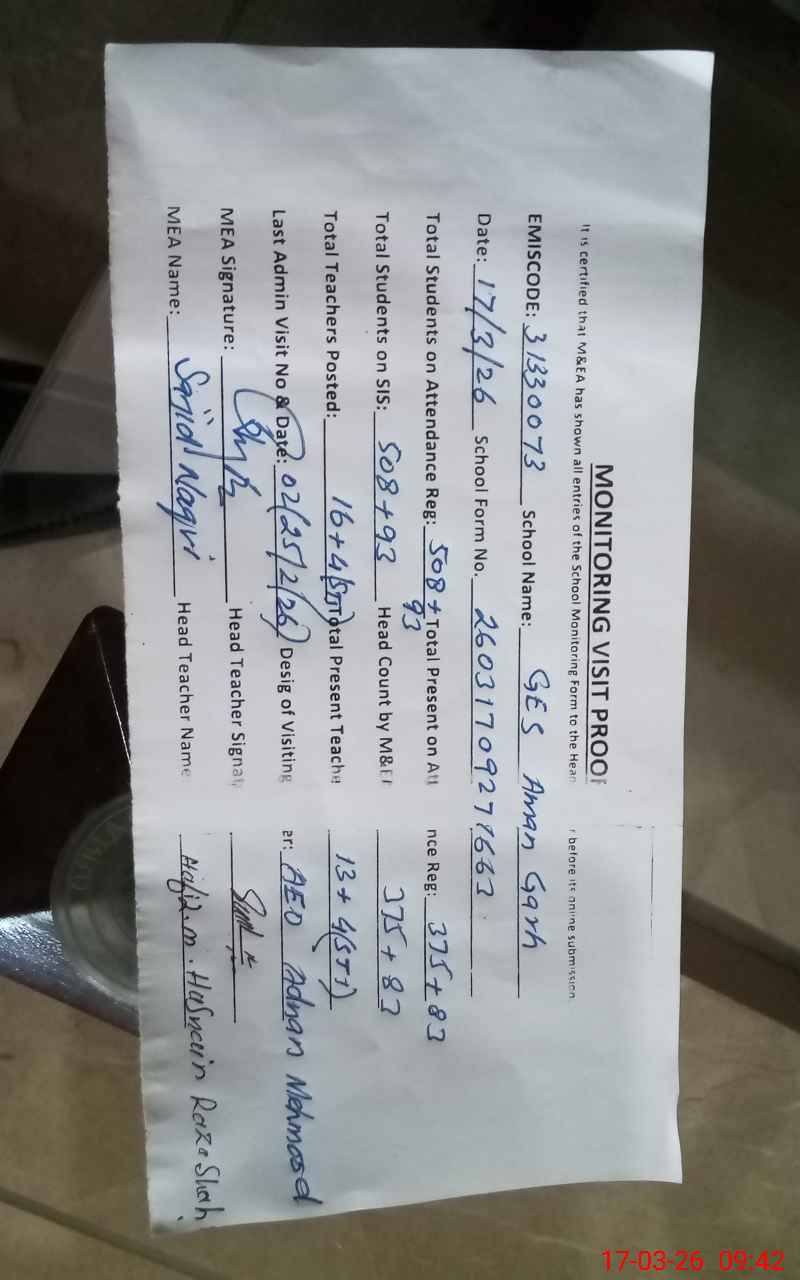 MONITORING VISIT PROOF
It is certified that M&EA has shown all entries of the School Monitoring Form to the Head before its online submission
EMISCODE: 31330073 School Name: GES Aman Garh
Date: 17/3/26 School Form No. 260317092
Total Students on Attendance Reg: 508+93 Total Present on Att nce Reg: 375+83
Total Students on SIS: 508+93 Head Count by M&E 375+83
Total Teachers Posted: 16+4(STI) Total Present Teache 13+4(STI)
Last Admin Visit No & Date: 02(25/2/26) Desig of Visiting er: AEO Adnan Mehmood
MEA Signature: Head Teacher Signat
MEA Name: Sajid Naqvi Head Teacher Name Hafiz.m.Hasnain Raza Shah
17-03-26 09:42